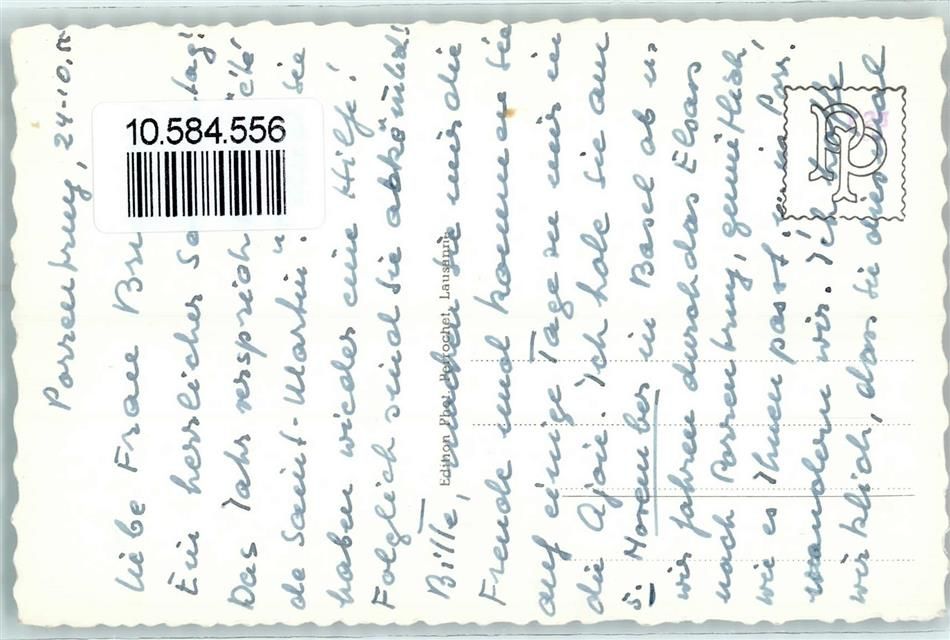 Porrentruy, 24-10.
liebe Frau
Ein herrlicher
Das Jahr verspricht
de Saint-Martin. Sie
haben wieder eine Hilfe!
Folglich sind Sie abkömlich!
Bitte, machen Sie mir die
Freude und kommen Sie
auf einige Tage zu mir in
die Ajoie. Ich hole Sie am
5. November in Basel ab u.
wir fahren durch das Elsass
nach Porrentruy, gemütlich,
wie es Ihnen passt!
wandern wir. Ich hoffe
wirklich, dass Sie diesmal
10.584.556
Edition Phot. Perrochet, Lausanne